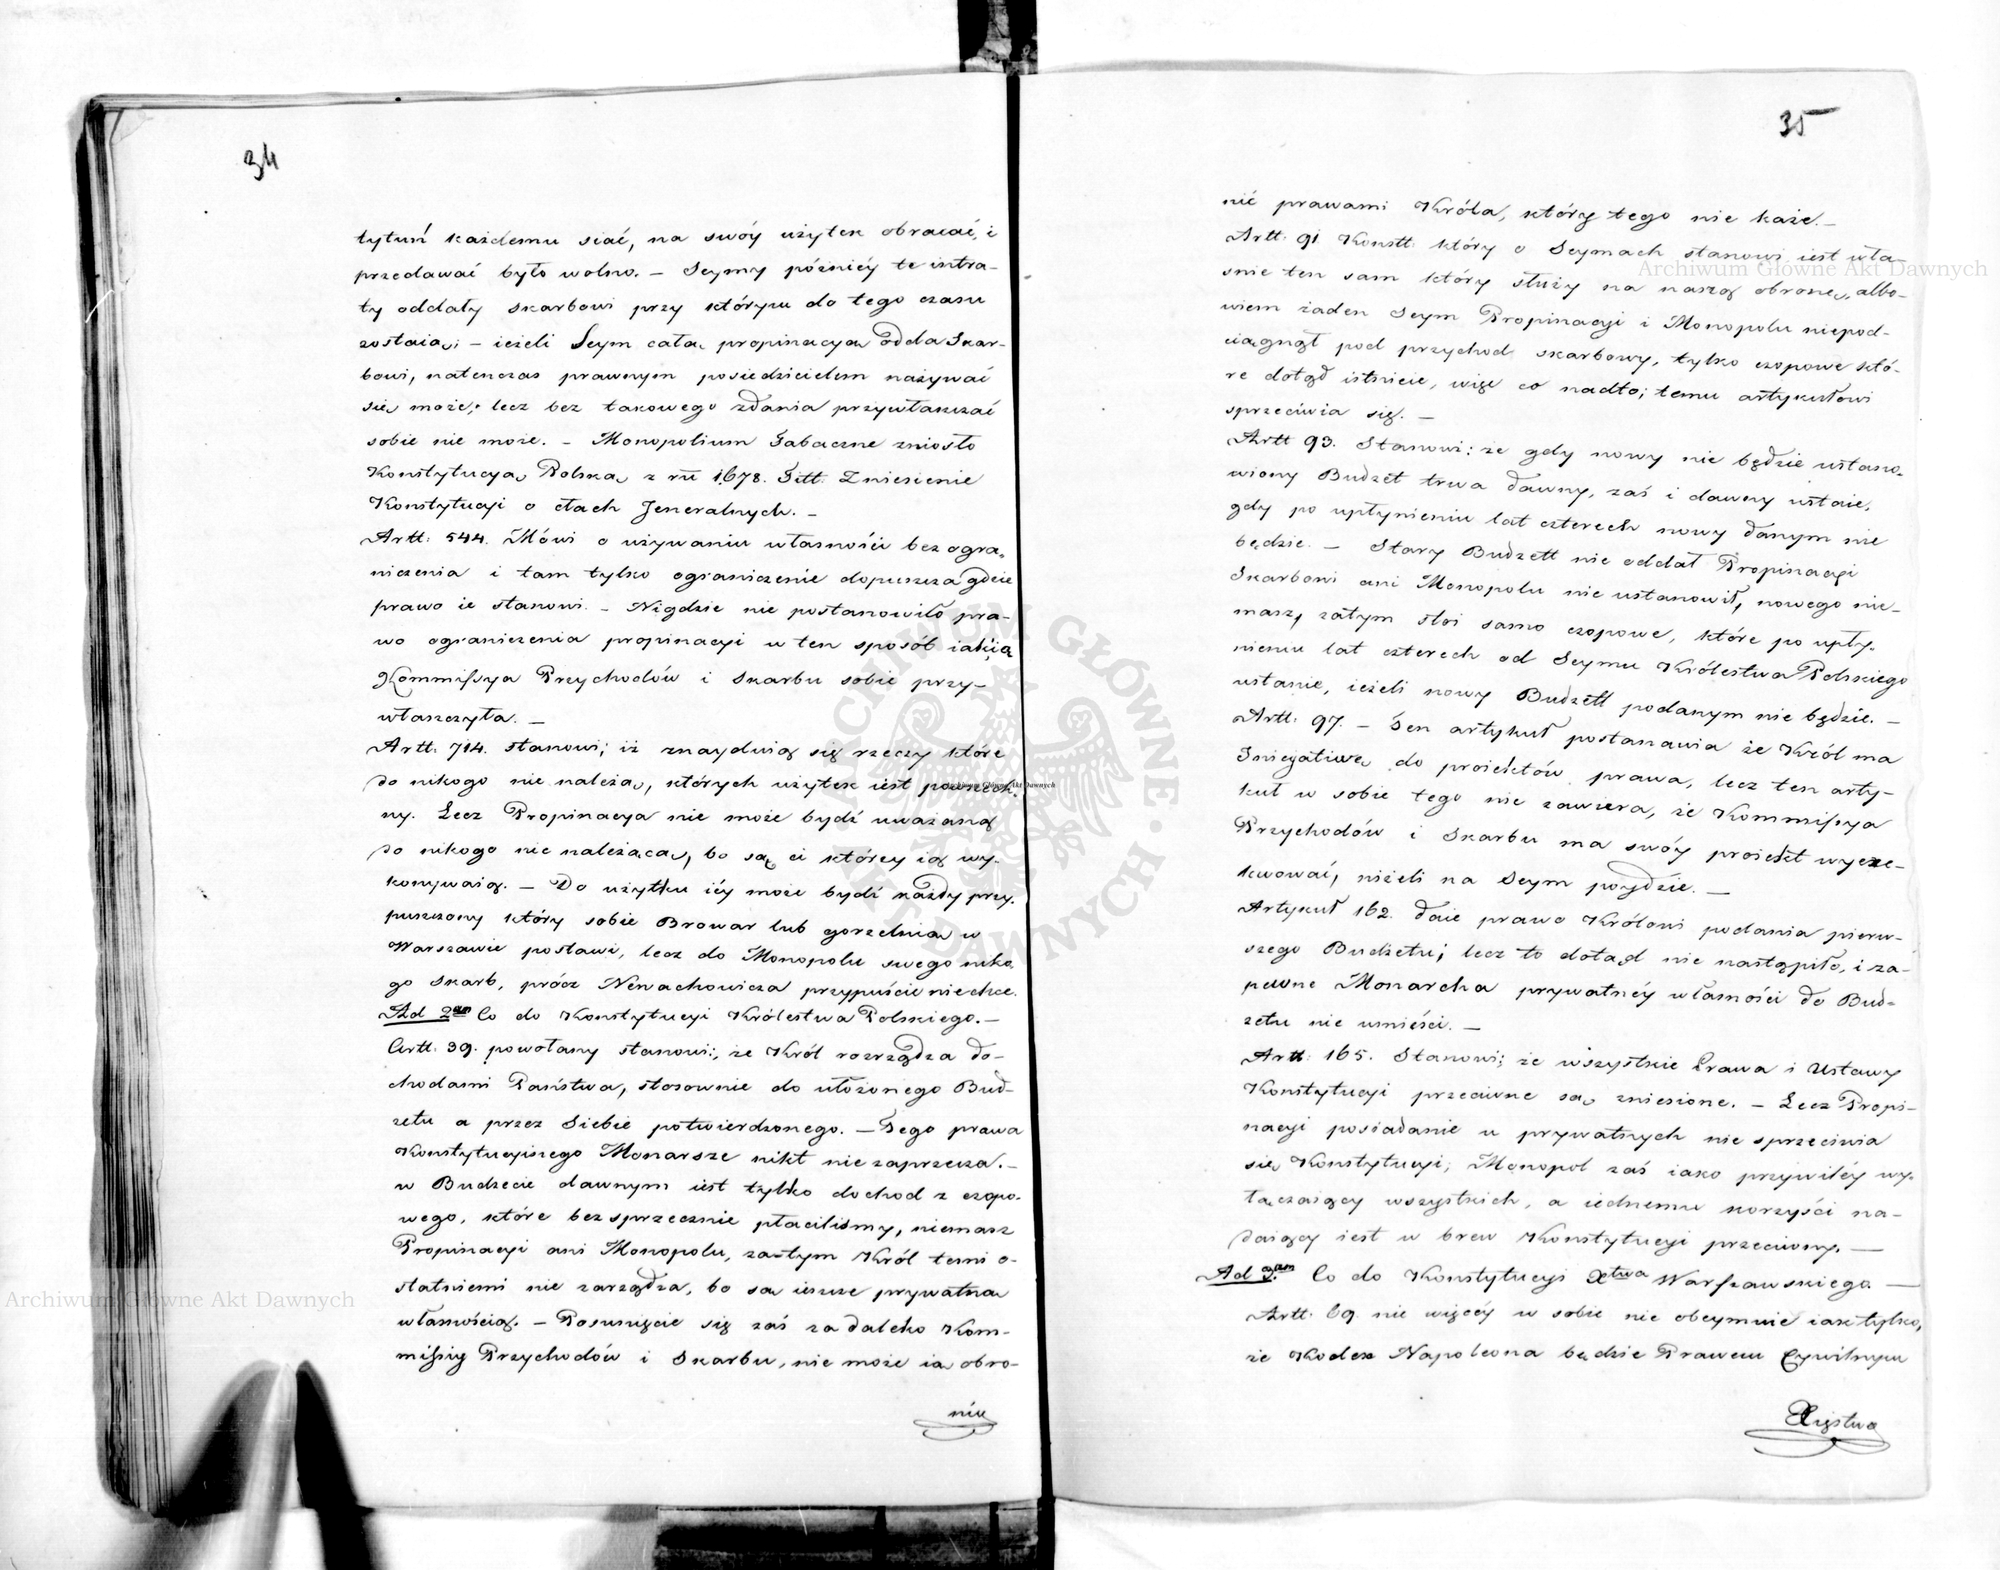 34
tytuń każdemu siać, na swóy użytek obracać, i
przedawać było wolno. – Seymy późniéy te intra-
ty oddały skarbowi przy którym do tego czasu
zostaią; – ieżeli Seym całą propinacyą odda Skar-
bowi, natenczas prawnym posiedzicielem nazywać
się może; lecz bez takowego zdania przywłaszczać
sobie nie może. – Monopolium Tabaczne zniosło
Konstytucya Polska z ru 1678. Titt. Zniesienie
Konstytucyi o cłach Jeneralnych. –
Artt: 544. Mówi o używaniu własności bez ogra-
niczenia i tam tylko ograniczenie dopuszcza gdzie
prawo ie stanowi. – Nigdzie nie postanowiło pra-
wo ograniczenia propinacyi w ten sposób iakią
Kommissya Przychodów i Skarbu sobie przy-
właszczyła. –
Artt: 714. stanowi; iż znayduią się rzeczy które
do nikogo nie należą, których użytek iest powszech-
ny. Lecz Propinacya nie może bydź uważaną
do nikogo nie należącą, bo są ci którzy ią wy-
konywaią. – Do użytku iéy może bydź każdy przy-
puszczony który sobie Browar lub gorzelnią w
Warszawie postawi, lecz do Monopolu swego niko-
go Skarb, prócz Newachowicza przypuścić nie chce.
Ad 2um Co do Konstytucyi Królestwa Polskiego. –
Artt: 39. powołany stanowi:, że Król rozrządza do-
chodami Państwa, stosownie do ułożonego Bud-
zetu a przez Siebie potwierdzonego. – Tego prawa
Konstytucyinego Monarsze nikt nie zaprzecza. –
w Budzecie dawnym iest tylko dochod z czopo-
wego, które bezsprzecznie płaciliśmy, niemasz
Propinacyi ani Monopolu, zatym Król temi o-
statniemi nie zarządza, bo są ieszcze prywatną
własnością. – Posunięcie się zaś za daleko Kom-
missiy Przychodów i Skarbu, nie może ią obro-
nić
35
nić prawami Króla, który tego nie każe. –
Artt: 91. Konstt: który o Seymach stanowi iest wła-
snie ten sam który służy na naszą obronę, albo-
wiem żaden Seym Propinacyi i Monopolu niepod-
ciągnął pod przychod skarbowy, tylko czopowe któ-
re dotąd istnieie, więc co nadto; temu artykułowi
sprzeciwia się. –
Artt 93. Stanowi: że gdy nowy nie będzie ustano-
wiony Budzet trwa dawny, zaś i dawny ustaie,
gdy po upłynieniu lat czterech nowy danym nie
będzie. – Stary Budzett nie oddał Propinacyi
Skarbowi ani Monopolu nie ustanowił, nowego nie-
masz, zatym stoi samo czopowe, które po upły-
nieniu lat czterech od Seymu Królestwa Polskiego
ustanie, ieżeli nowy Budzett podanym nie będzie. –
Artt: 97. – Ten artykuł postanawia że Król ma
Inicyatiwę do proiektów prawa, lecz ten arty-
kuł w sobie tego nie zawiera, że Kommissya
Przychodów i Skarbu ma swóy proiekt wyexe-
kwować, niżeli na Seym poydzie. –
Artykuł 162. daie prawo Królowi podania pierw-
szego Budżetu; lecz to dotąd nie nastąpiło, i za-
pewne Monarcha prywatnéy własności do Bud-
zetu nie umieści. –
Artt: 165. Stanowi; że wszystkie Prawa i Ustawy
Konstytucyi przeciwne są zniesione. – Lecz Propi-
nacyi posiadanie u prywatnych nie sprzeciwia
się Konstytucyi; Monopol zaś iako przywiléy wy-
łączaiący wszystkich, a iednemu korzyści na-
daiący iest w brew Konstytucyi przeciwny. —
Ad 3um Co do Konstytucyi Xtwa Warszawskiego. —
Artt: 69. nie więcéy w sobie nie obeymuie iak tylko,
że Kodex Napoleona będzie Prawem Cywilnym
Xięstwa
Archiwum Główne Akt Dawnych
Archiwum Główne Akt Dawnych
Archiwum Główne Akt Dawnych
ARCHIWUM GŁÓWNE AKT DAWNYCH